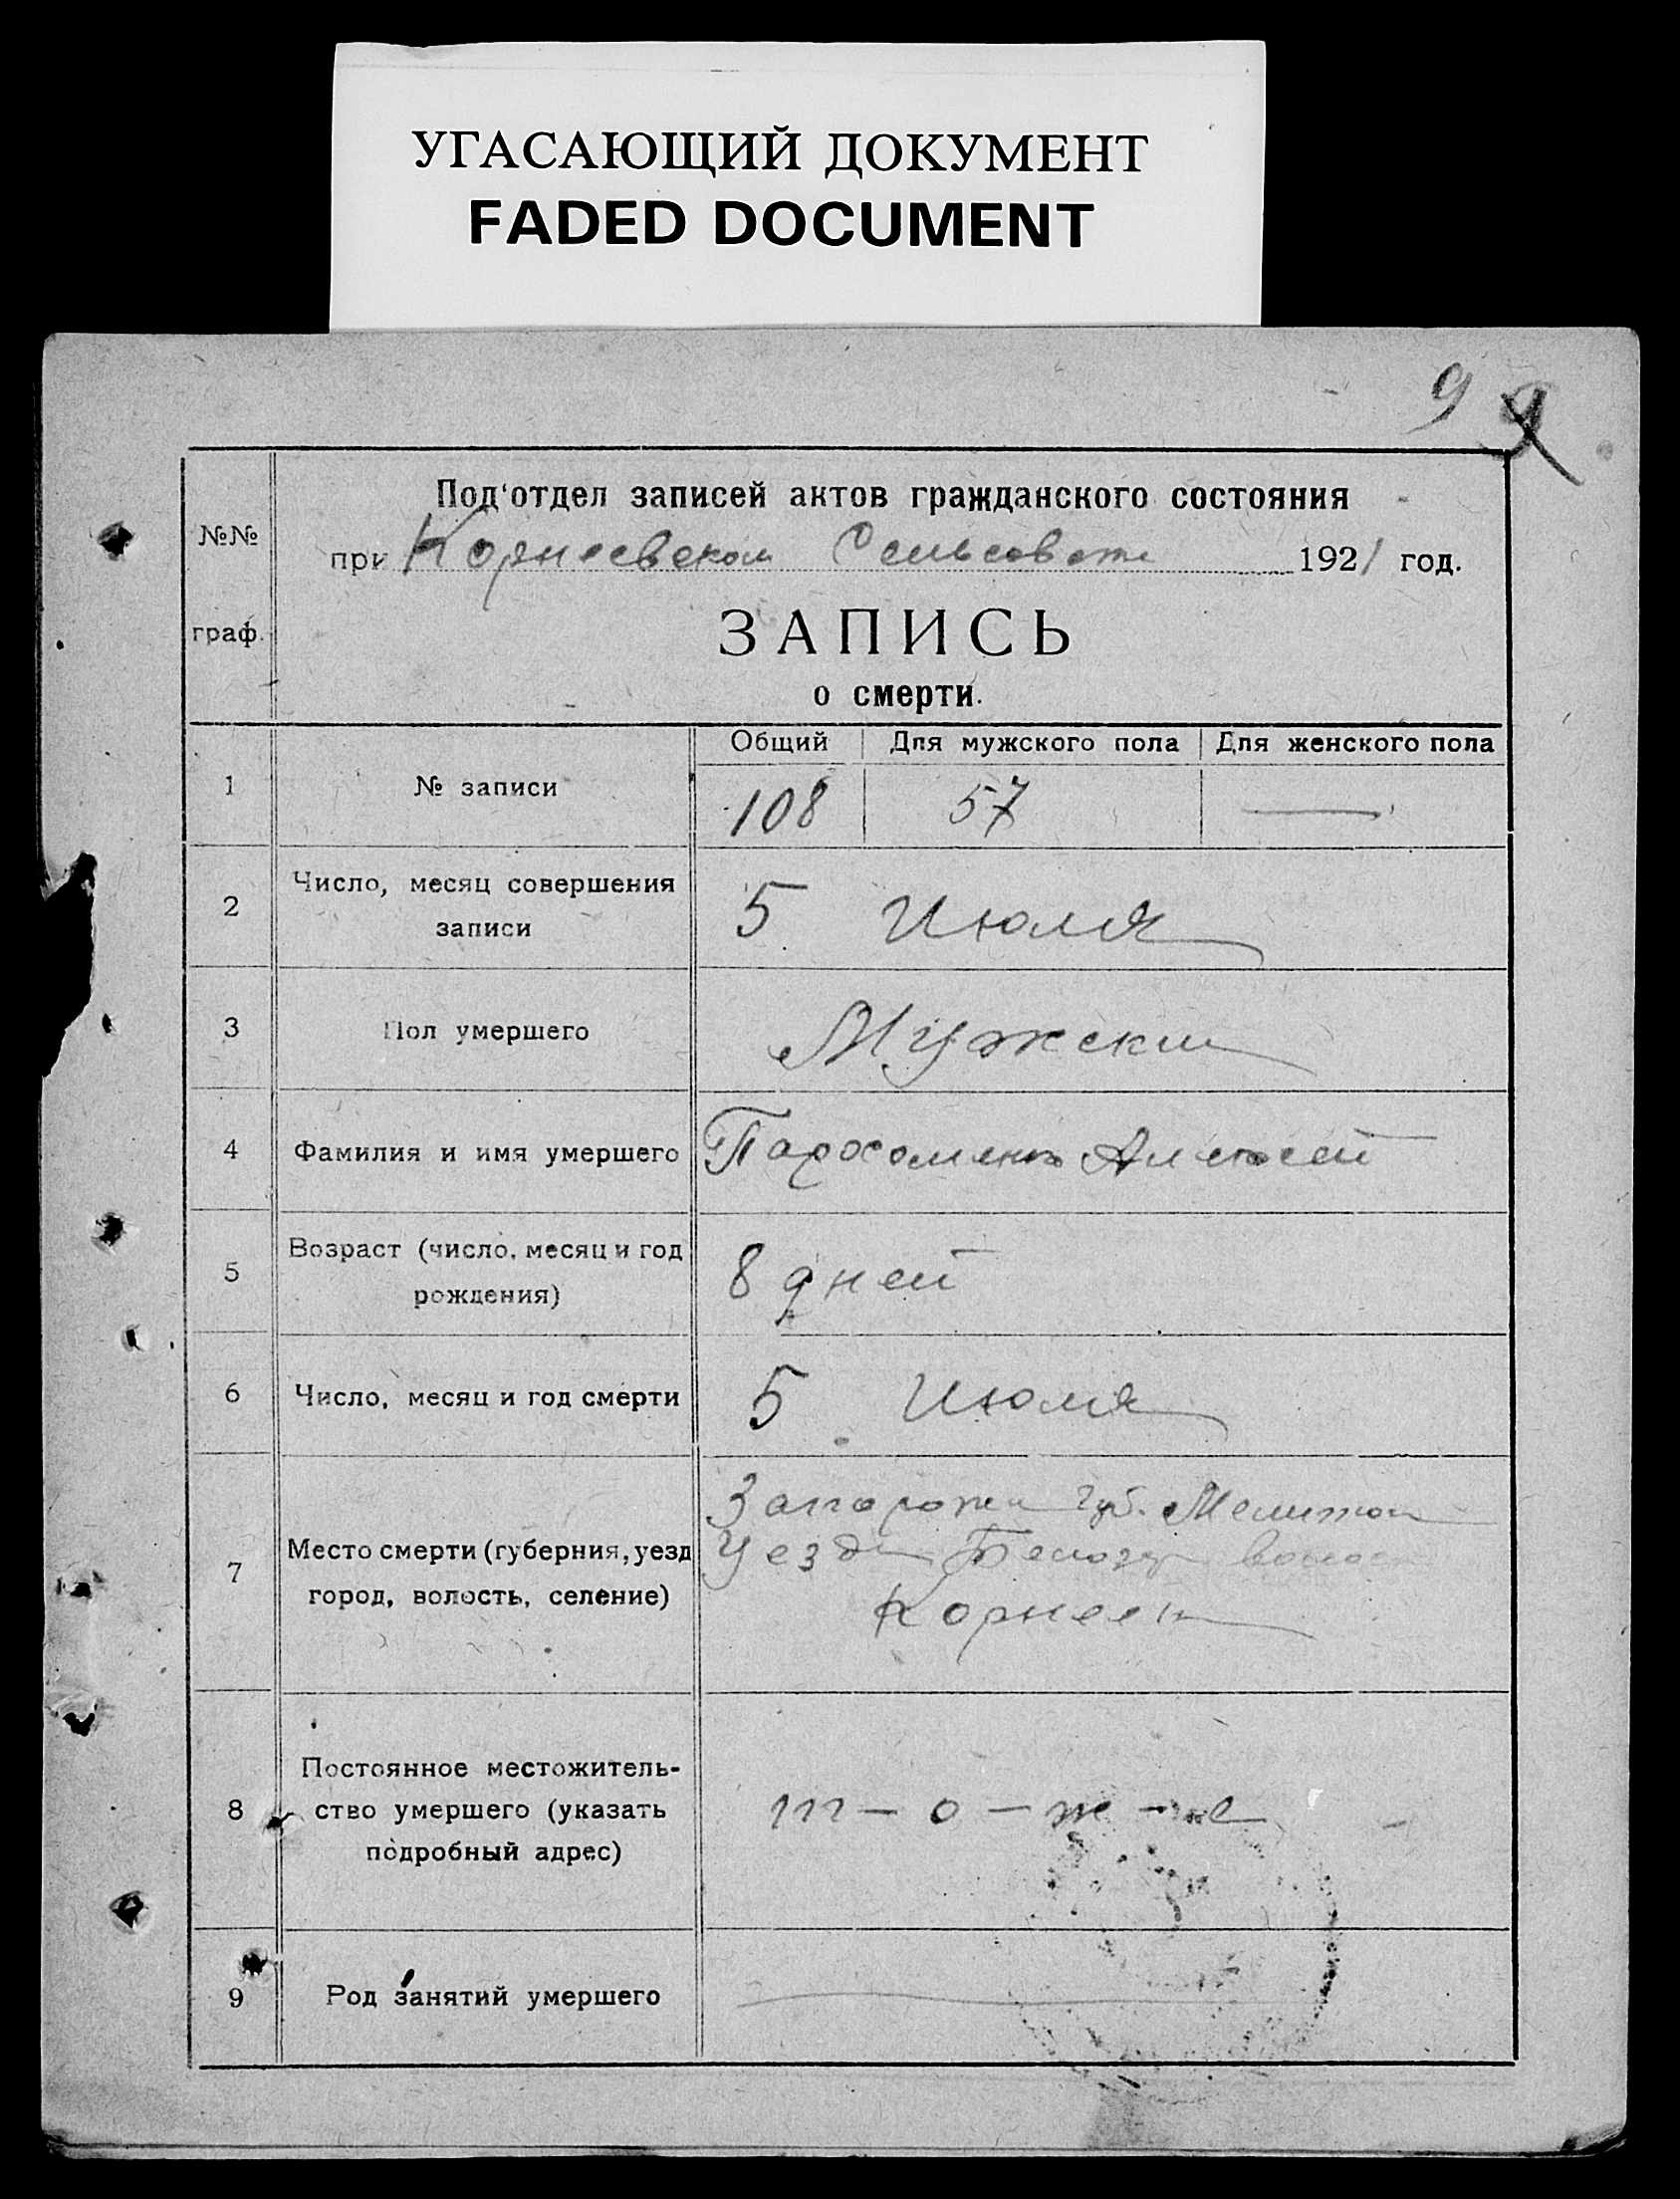 УГАСАЮЩИЙ ДОКУМЕНТ
FADED DOCUMENT
9 9
№№
граф.
Под'отдел записей актов гражданского состояния
при Корнеевском Сельсовете 1921 год.
ЗАПИСЬ
о смерти.
1 № записи
Общий Для мужского пола Для женского пола
108 57 —
2 Число, месяц совершения
записи
5 Июля
3 Пол умершего Мужски
4 Фамилия и имя умершего Пархоменко Алексей
5 Возраст (число, месяц и год
рождения)
8 дней
6 Число, месяц и год смерти 5 Июля
7 Место смерти (губерния, уезд
город, волость, селение)
Запорожс губ. Мелитоп
Уезд Белозер волос
Корнеев
8 Постоянное местожитель-
ство умершего (указать
подробный адрес)
т - о - ж - е
9 Род занятий умершего